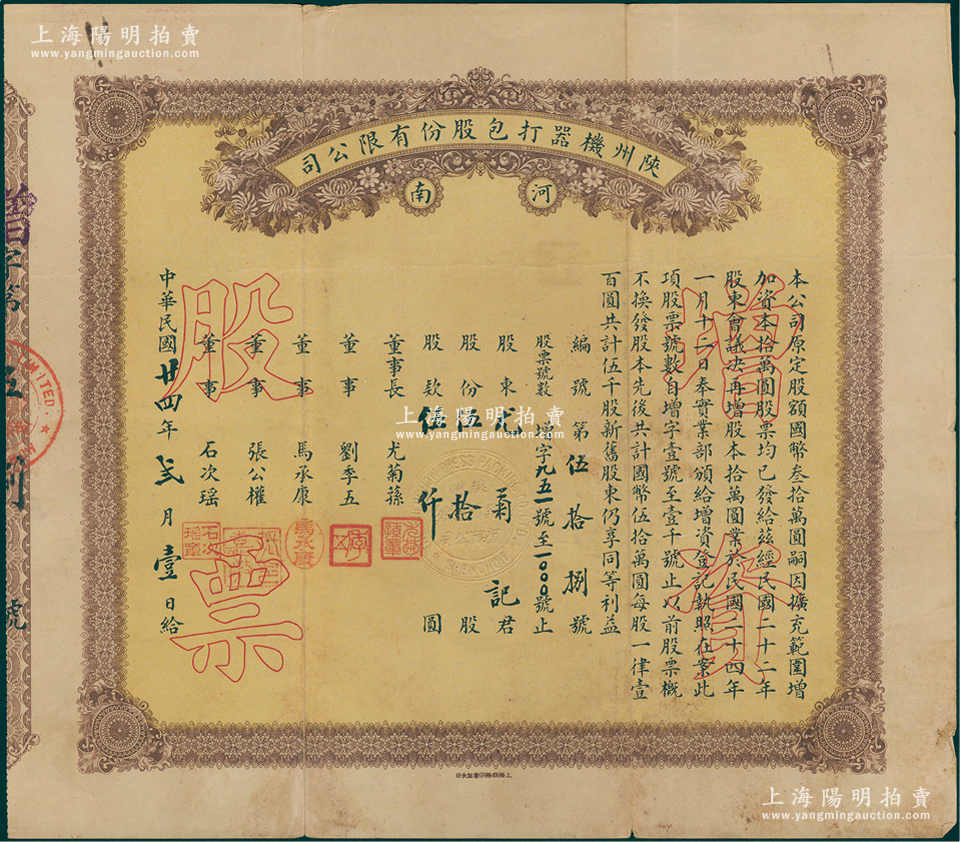 上海陽明拍賣
www.yangmingauction.com
陝州機器打包股份有限公司
河南
增資
股票
本公司原定股額國幣叁拾萬圓嗣因擴充範圍增
加資本拾萬圓股票均已發給茲經民國二十二年
股東會議決再增股本拾萬圓業於民國二十四年
一月十二日奉實業部頒給增資登記執照在案此
項股票號數自增字壹號至壹千號止以前股票概
不換發股本先後共計國幣伍拾萬圓每股一律壹
百圓共計伍千股新舊股東仍享同等利益
編號第伍拾捌號
股票號數增字九五一號至一〇〇〇號止
股東尤菊記君
股份伍拾股
股款伍仟圓
董事長 尤菊蓀
董事 劉季五
董事 馬承康
董事 張公權
董事 石次瑶
中華民國廿四年弍月壹日給
增字第
號
LIMITED.
上海陽明拍賣
www.yangmingauction.com
上海陽明拍賣
www.yangmingauction.com